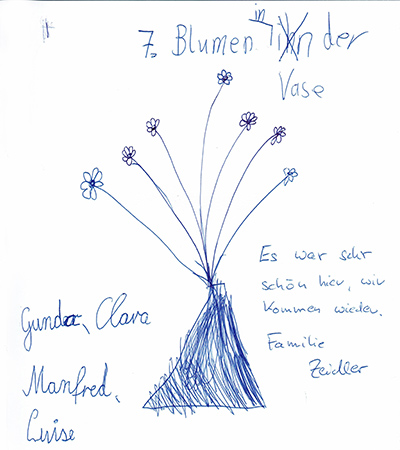 7. Blumen in der
Vase
Es war sehr
schön hier, wir
kommen wieder.
Familie
Zeidler
Gunda, Clara
Manfred,
Luise